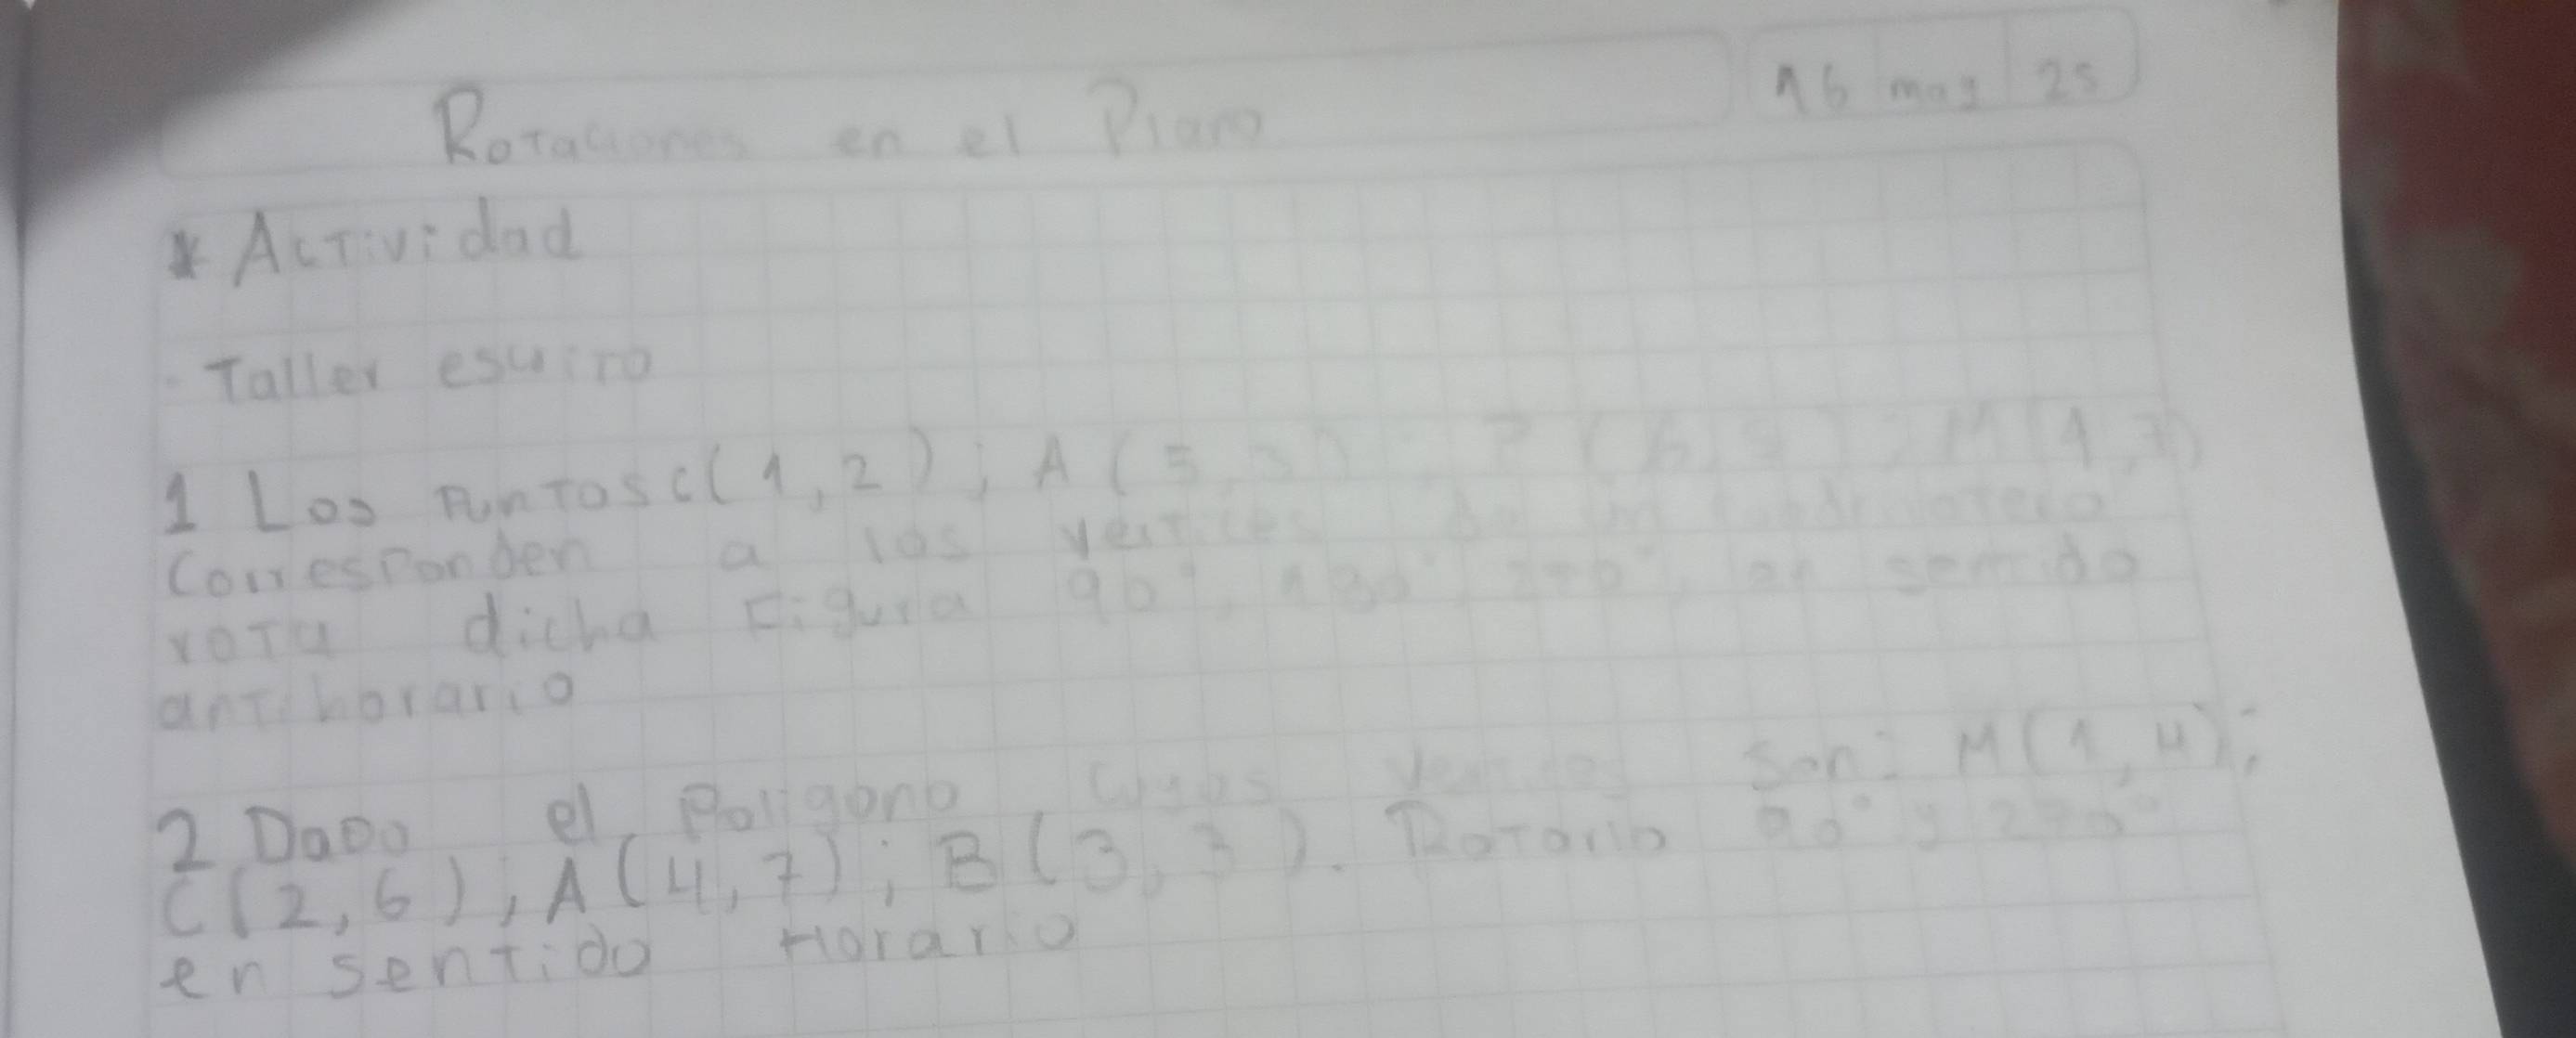 Rotaciones en el Plano
16 may 25
* Actividad
- Taller escrito
1 Los PunTos C(1,2); A(5,3) P(6, ); M(1,7)
Corresponden a los vertices de un
rota dicha Figura 90°, 180° 270°, en sentido
antihorario
2 Dado el Poligono cuyos vertices son: M(1,4);
C(2,6), A(4,7); B(3,3). Rotarlo 90° y 270°
en sentido Horario